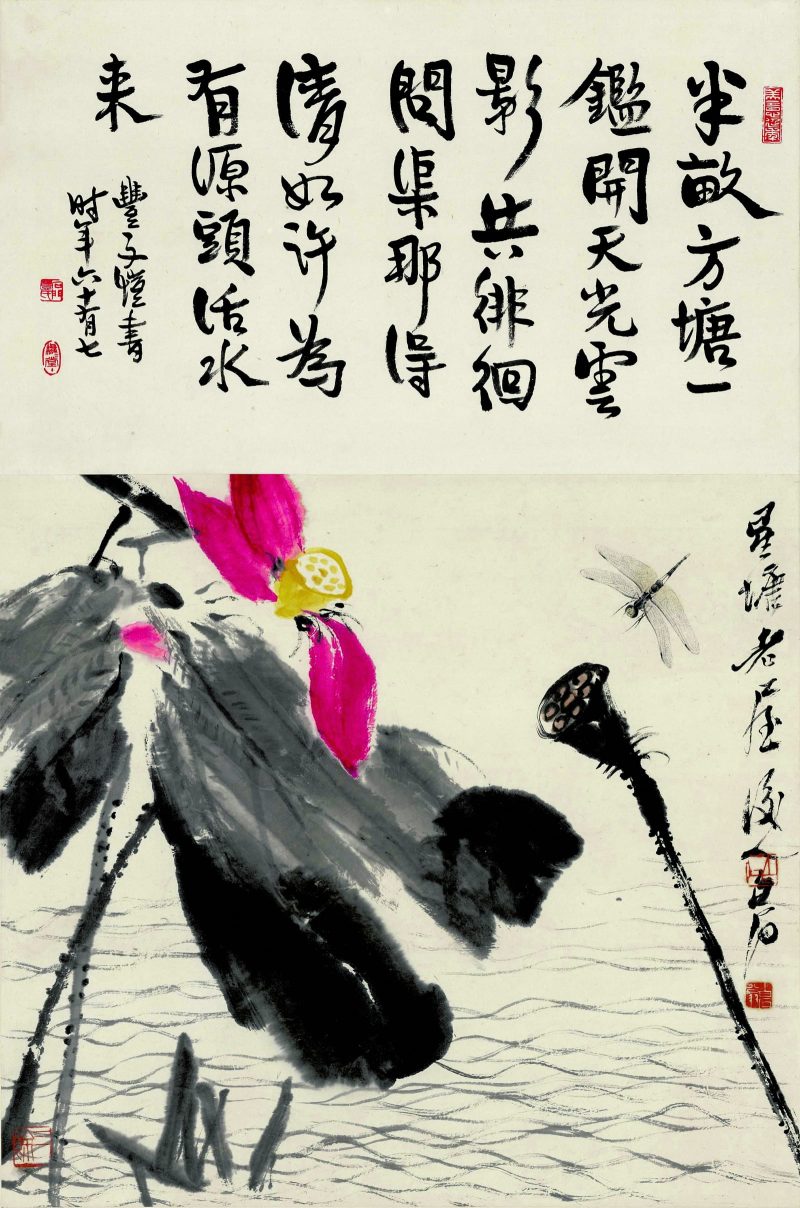 半畝方塘一
鑑開天光雲
影共徘徊
問渠那得
清如许為
有源頭活水
来
豐子愷書
时年六十有七
星塘老屋後人白石